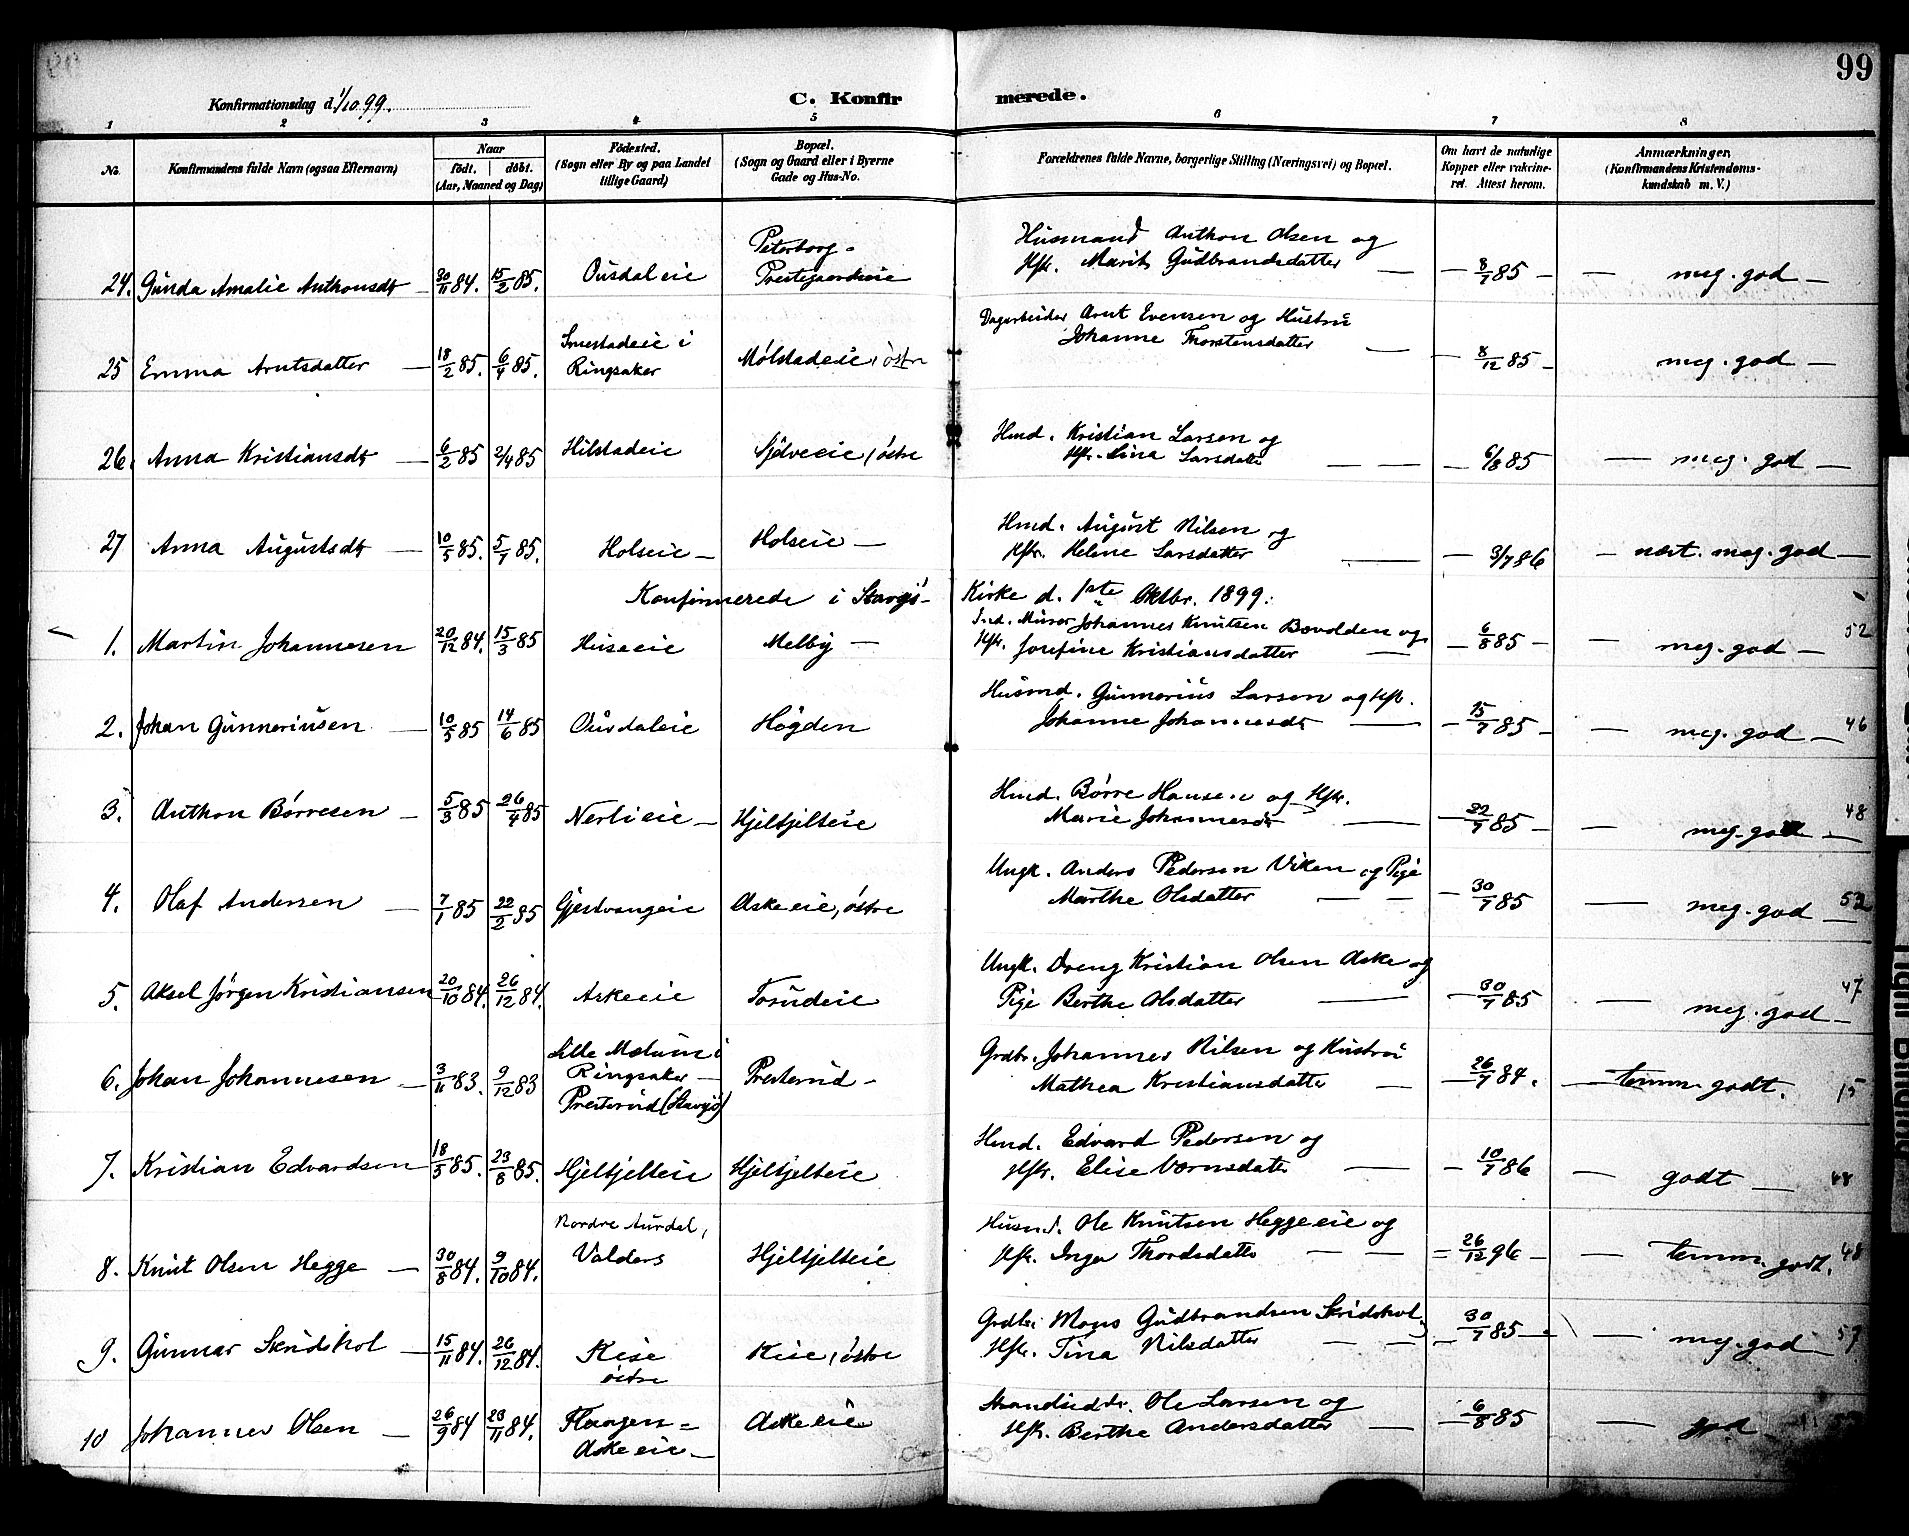 99
Konfirmationsdag d. 1/10 99.
C. Konfirmerede.
1 2 3 4 5 6 7 8
No. Konfirmandens fulde Navn (ogsaa Efternavn) Naar födt. döbt. (Aar, Maaned og Dag) Födested. (Sogn eller By og paa Landet tillige Gaard) Bopæl. (Sogn og Gaard eller i Byerne Gade og Hus-No. Forældrenes fulde Navne, borgerlige Stilling (Næringsvei) og Bopæl. Om havt de naturlige Kopper eller vakcineret. Attest herom. Anmærkninger, (Konfirmandens Kristendomskundskab m. V.)
24. Gunda Amalie Anthonsdt 30/11 84. 15/2 85. Ousdaleie Peterborg - Prestegaardseie Husmand Anthon Olsen og Hstr. Marit Gudbrandsdatter — 8/7 85 — meg. god —
25 Emma Arntsdatter — 18/2 85. 6/4 85. Smestadeie i Ringsaker Mølstadeie, østre Dagarbeider Arnt Evensen og Hustru Johanne Thorstensdatter — 8/12 85 — meg. god —
26. Anna Kristiansdt — 6/2 85 2/4 85 Hilstadeie Sjølveeie, østre Hmd. Kristian Larsen og Hstr. Lina Larsdatr — 6/8 85 — meg. god —
27 Anna Augustsdt — 10/5 85. 5/7 85. Holseie — Holseie — Hmd. August Nilsen og Hstr. Helene Larsdatter — 3/7 86 — næst. meg. god —
Konfirmerede i Stavsjö - Kirke d. 1ste Oktbr. 1899:
1. Martin Johannesen 20/12 84. 15/3 85 Huseeie Melby — Ind. Murer Johannes Knutsen Bovolden og Hstr. Josefine Kristiansdatter — 6/8 85 — meg. god — 52
2. Johan Gunneriusen — 10/5 85 14/6 85 Ousdaleie Høgden Husmd. Gunnerius Larsen og Hstr. Johanne Johannesdt — 15/7 85 — meg. god — 46
3. Anthon Børresen — 5/3 85 26/4 85 Nerlieie — Hjeltjelteie Hmd. Børre Hansen og Hstr. Marie Johannesdt — 22/7 85 — meg. god — 48
4. Olaf Andersen — 7/1 85 22/2 85 Gjestvangeie Askeeie, østre Ungk. Anders Pedersen Viken og Pige Marthe Olsdatter — 30/7 85 — meg. god — 52
5. Aksel Jørgen Kristiansen 20/10 84. 26/12 84. Askeeie Torudeie Ungk. Dreng Kristian Olsen Aske og Pige Berthe Olsdatter — 30/7 85 — meg. god — 47
6. Johan Johannesen — 3/11 83. 9/12 83 Lille Mælum i Ringsaker — Presterud (Stavsjö) Presterud — Grdbr. Johannes Nilsen og Hustru Mathea Kristiansdatter — 26/7 84. — temm. godt. 15
7. Kristian Edvardsen 18/5 85. 23/8 85. Hjeltjelteie Hjeltjelteie Hmd. Edvard Pedersen og Hstr. Elise — 10/7 86 — godt — 48
8. Knut Olsen Hegge — 30/8 84. 9/10 84. Nordre Aurdal, Valders Hjeltjelteie Husmd. Ole Knutsen Heggeeie og Hstr. Inger Thordsdatter — 26/12 96 — temm. godt. 48
9. Gunnar Skridshol — 15/11 84. 26/12 84. Kise østre Kise, østre Grdbr. Mons Gudbrandsen Skridshol, Hstr. Tina Nilsdatter — 30/7 85 — meg. god — 57
10 Johannes Olsen — 26/9 84 23/11 84. Haagen = Askeeie — Askeeie Ole Larsen og Hstr. Berthe Andersdatter — 6/8 85 — god —